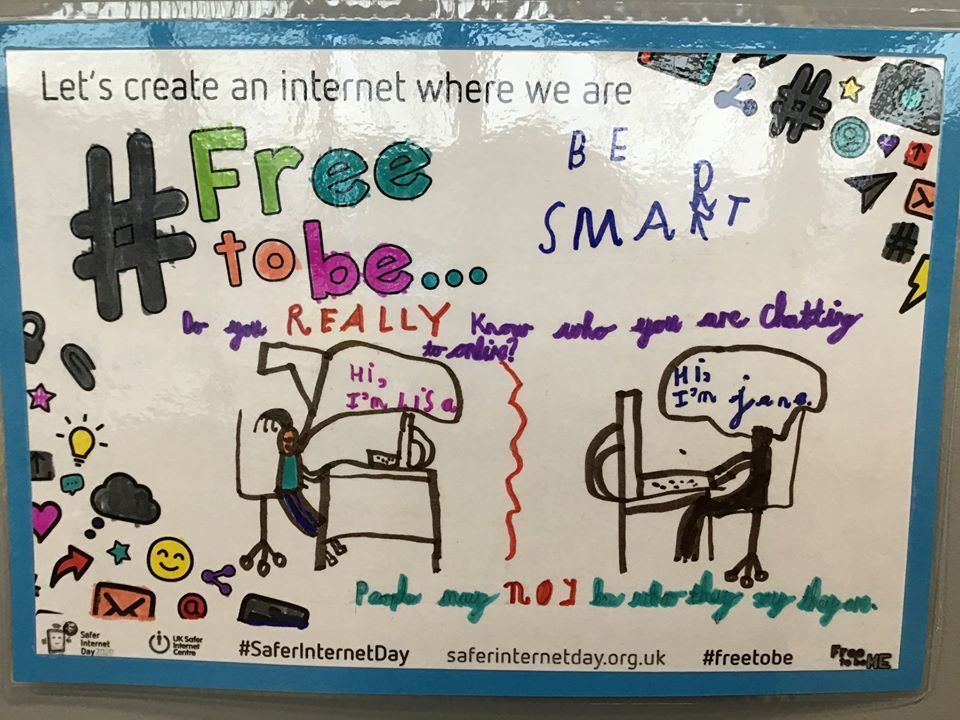 Let's create an internet where we are
#Free
to be...
BE
SMART
Do you REALLY know who you are chatting
to online?
Hi,
I'm Lisa
Hi,
I'm jane.
People may NOT be who they say they are.
Safer
Internet
Day 2020
UK Safer
Internet
Centre
#SaferInternetDay
saferinternetday.org.uk
#freetobe
Free
to be ME